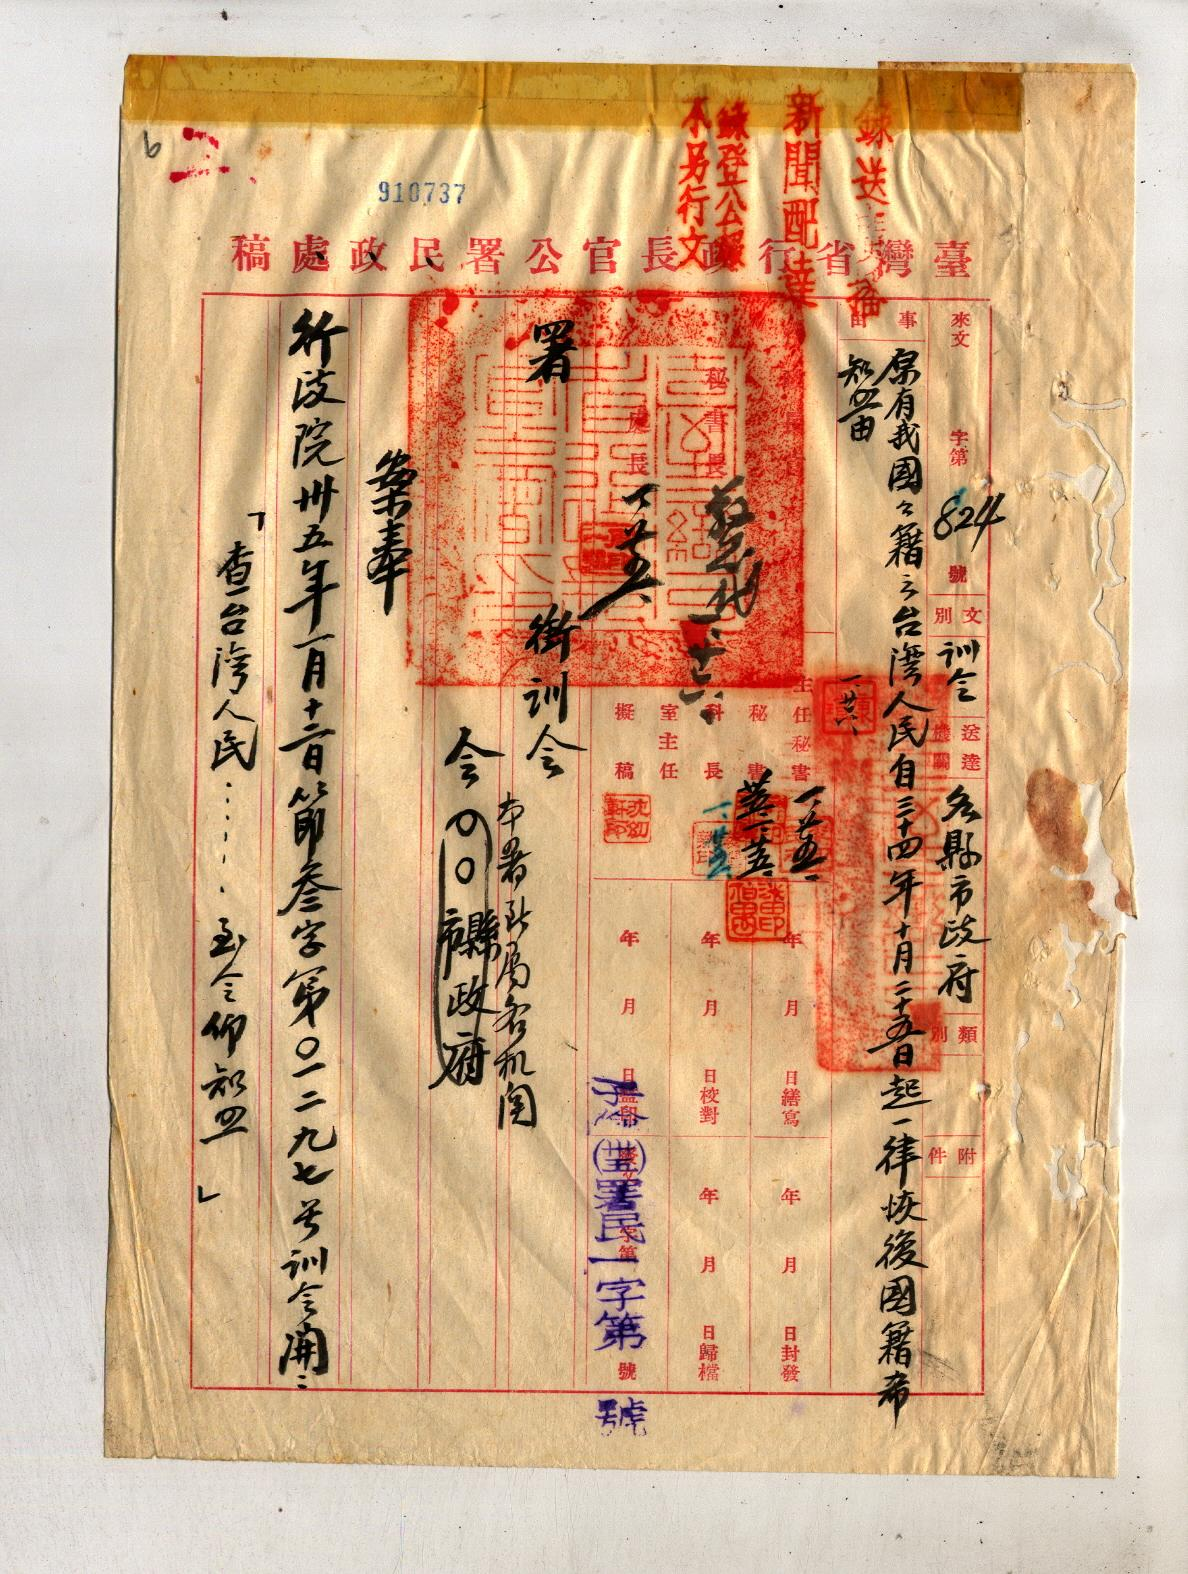 6
910737
錄送
新聞配達
錄登公報
不另行文
臺灣省行政長官公署民政處稿
來文 字第 824 號
文別 訓令
送達機關 各縣市政府
類別
附件
事由
原有我國國籍之台灣人民自三十四年十月二十五日起一律恢復國籍希
知照由
秘書長
處長
主任秘書
秘書
科長
室主任
擬稿
沈幼軒印
年 月 日繕寫
年 月 日校對
年 月 日蓋印
年 月 日封發
年 月 日歸檔
發文 字第 號
署民一字第 號
署 銜訓令
本署所屬各机关
令〇〇縣市政府
案奉
行政院卅五年一月十二日節叁字第〇一二九七号訓令開：
「查台灣人民……至令仰知照」